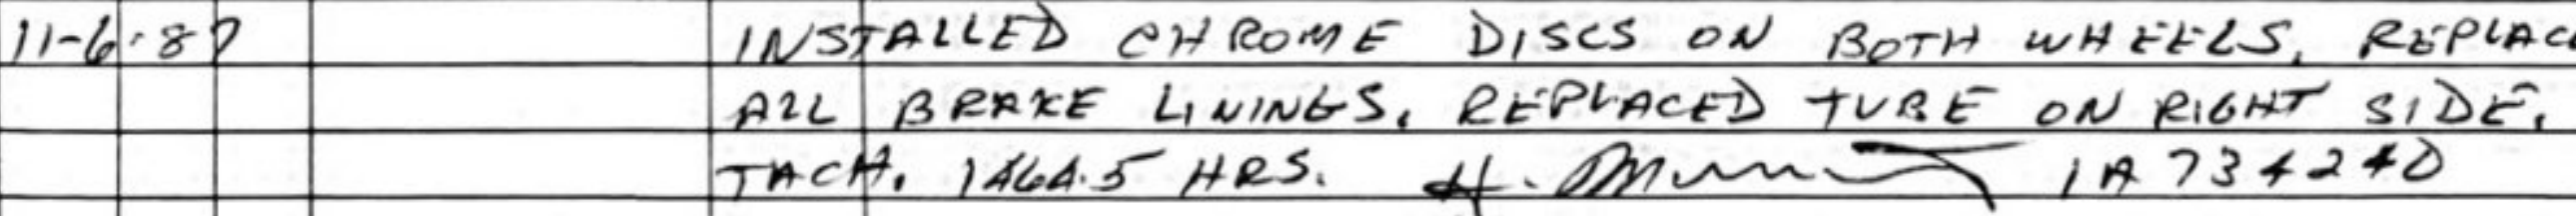 11-6-87 INSTALLED CHROME DISCS ON BOTH WHEELS, REPLAC
ALL BRAKE LININGS. REPLACED TUBE ON RIGHT SIDE.
TACH. 1464.5 HRS. H. IA 734240